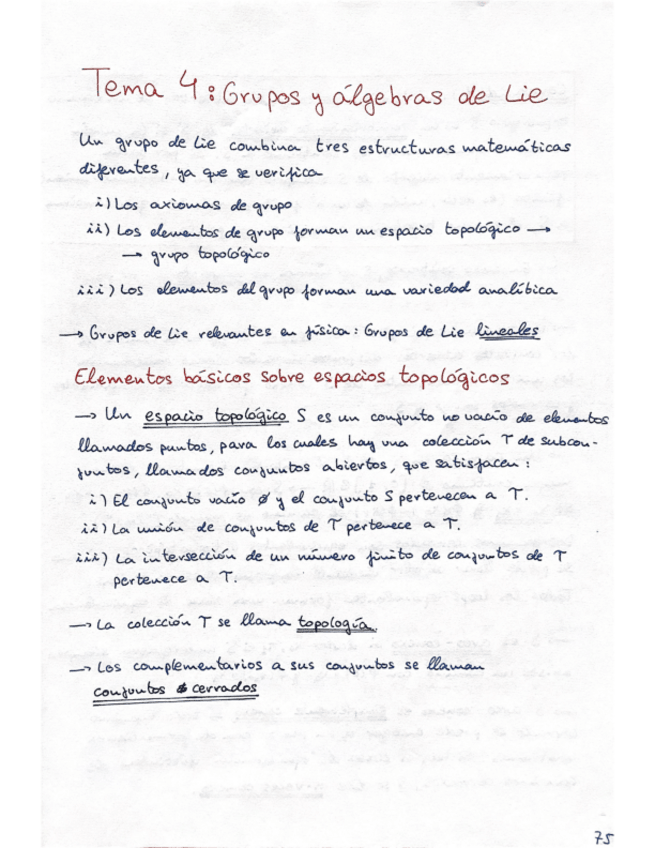 Tema 4: Grupos y álgebras de Lie
Un grupo de Lie combina tres estructuras matemáticas
diferentes, ya que se verifica
i) Los axiomas de grupo
ii) Los elementos de grupo forman un espacio topológico →
→ grupo topológico
iii) Los elementos del grupo forman una variedad analítica
→ Grupos de Lie relevantes en física: Grupos de Lie lineales
Elementos básicos sobre espacios topológicos
→ Un espacio topológico S es un conjunto no vacío de elementos
llamados puntos, para los cuales hay una colección T de subcon-
juntos, llamados conjuntos abiertos, que satisfacen:
i) El conjunto vacío ∅ y el conjunto S pertenecen a T.
ii) La unión de conjuntos de T pertenece a T.
iii) La intersección de un número finito de conjuntos de T
pertenece a T.
→ La colección T se llama topología.
→ Los complementarios a sus conjuntos se llaman
conjuntos cerrados
75